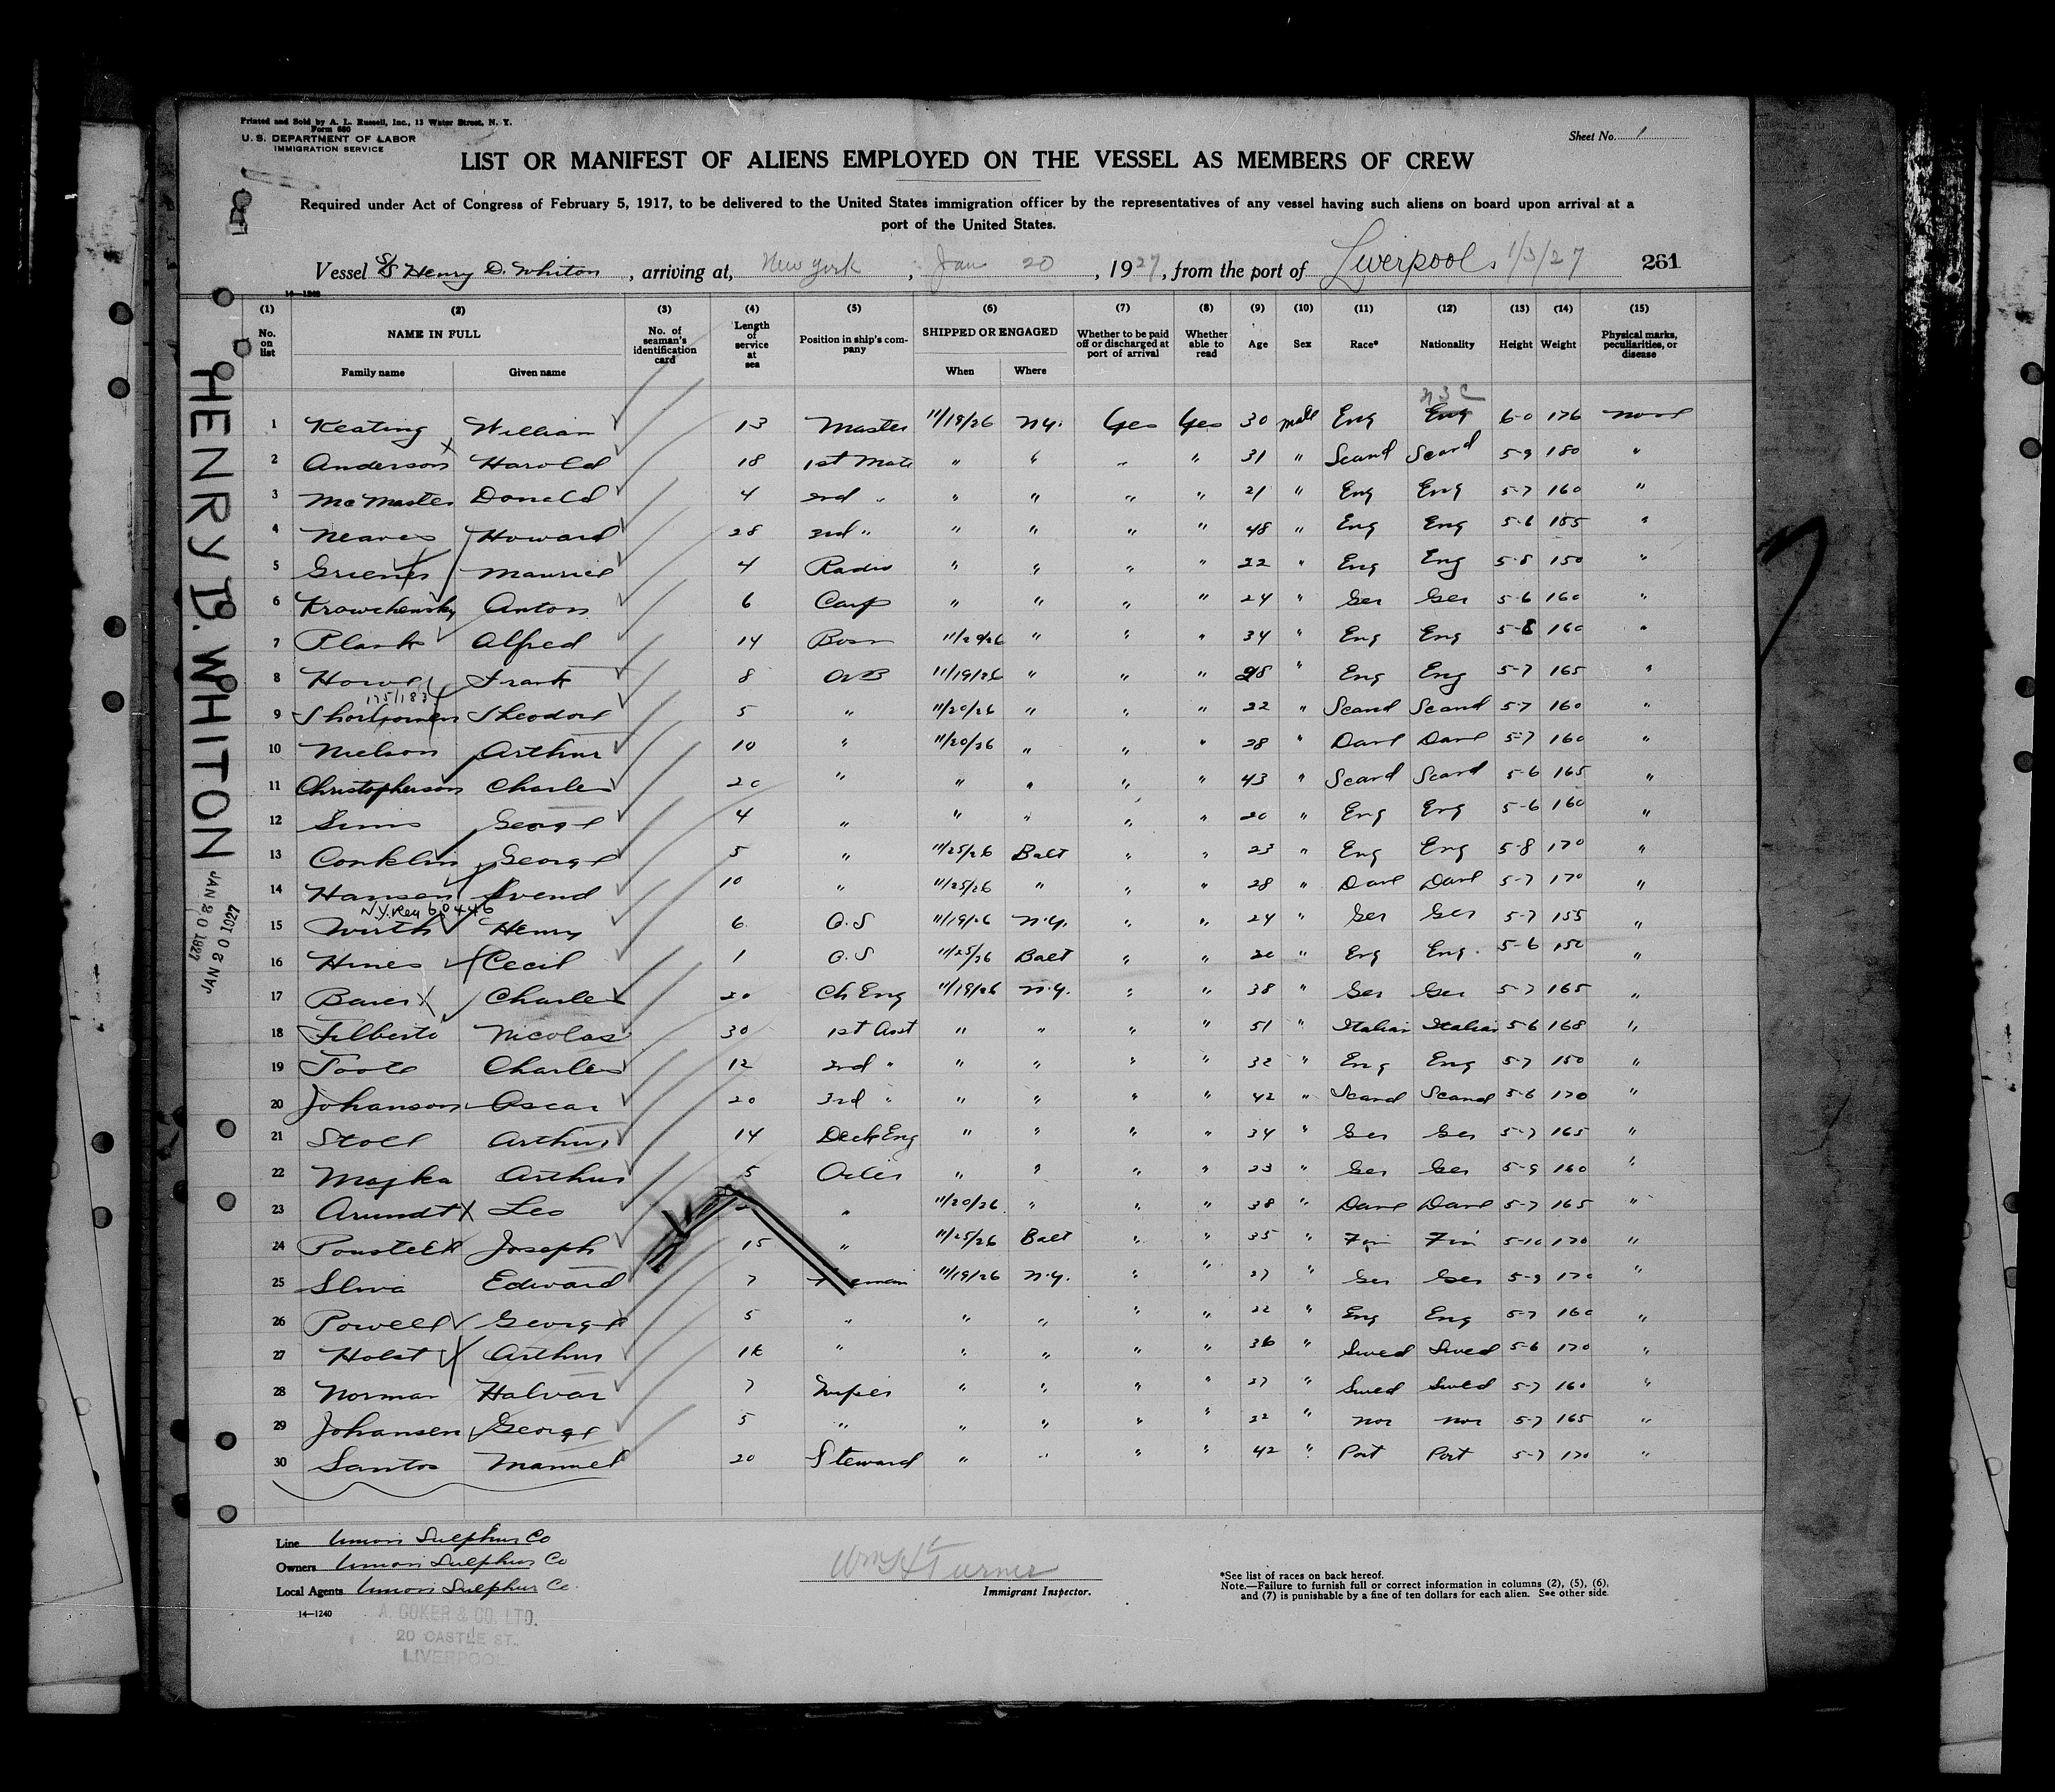 Printed and Sold by A. L. Russell, Inc., 13 Water Street, N. Y.
Form 680
U. S. DEPARTMENT OF LABOR
IMMIGRATION SERVICE
Sheet No. 1
LIST OR MANIFEST OF ALIENS EMPLOYED ON THE VESSEL AS MEMBERS OF CREW
Required under Act of Congress of February 5, 1917, to be delivered to the United States immigration officer by the representatives of any vessel having such aliens on board upon arrival at a
port of the United States.
Vessel S/S Henry D. Whiton, arriving at, New York, Jan 20, 1927, from the port of Liverpool 1/3/27 261
14—1240
(1) (2) (3) (4) (5) (6) (7) (8) (9) (10) (11) (12) (13) (14) (15)
No. on list NAME IN FULL No. of seaman's identification card Length of service at sea Position in ship's company SHIPPED OR ENGAGED Whether to be paid off or discharged at port of arrival Whether able to read Age Sex Race* Nationality Height Weight Physical marks, peculiarities, or disease
Family name Given name When Where
1 Keating William 13 Master 11/19/26 N.Y. Yes Yes 30 male Eng Eng 6-0 176 none
2 Anderson Harold 18 1st Mate " " " " 31 " Scand Scand 5-9 180 "
3 McMaster Donald 4 2nd " " " " " 21 " Eng Eng 5-7 160 "
4 Neaves Howard 28 3rd " " " " " 48 " Eng Eng 5-6 155 "
5 Maurice 4 Radio " " " " 22 " Eng Eng 5-8 150 "
6 Krowchensky Anton 6 Carp " " " " 24 " Ger Ger 5-6 160 "
7 Plank Alfred 14 Bosn 11/20/26 " " " 34 " Eng Eng 5-8 160 "
8 Howe Frank 8 AB 11/19/26 " " " 28 " Eng Eng 5-7 165 "
175/183
9 Theodore 5 " 11/20/26 " " " 22 " Scand Scand 5-7 160 "
10 Nielson Arthur 10 " 11/20/26 " " " 28 " Dane Dane 5-7 160 "
11 Christopherson Charles 20 " " " " " 43 " Scand Scand 5-6 165 "
12 Sims George 4 " " " " " 20 " Eng Eng 5-6 160 "
13 Conklin George 5 " 11/25/26 Balt " " 23 " Eng Eng 5-8 170 "
14 Hansen Svend 10 " 11/25/26 " " " 28 " Dane Dane 5-7 170 "
N.Y. Reg 60446
15 Wirth Henry 6 O.S 11/19/26 N.Y. " " 24 " Ger Ger 5-7 155 "
16 Hines Cecil 1 O.S 11/25/26 Balt " " 20 " Eng Eng. 5-6 150 "
17 Baier Charles 20 Ch Eng 11/19/26 N.Y. " " 38 " Ger Ger 5-7 165 "
18 Filberto Nicolas 30 1st Asst " " " " 51 " Italian Italian 5-6 168 "
19 Toote Charles 12 2nd " " " " " 32 " Eng Eng 5-7 150 "
20 Johanson Oscar 20 3rd " " " " " 42 " Scand Scand 5-6 170 "
21 Stoll Arthur 14 Deck Eng " " " " 34 " Ger Ger 5-7 165 "
22 Majka Arthur 5 Oiler " " " " 23 " Ger Ger 5-9 160 "
23 Arundt Leo " 11/20/26 " " " 38 " Dane Dane 5-7 165 "
24 Joseph 15 " 11/25/26 Balt " " 35 " Fin Fin 5-10 170 "
25 Sliva Edward 7 Fireman 11/19/26 N.Y. " " 27 " Ger Ger 5-9 170 "
26 Powell George 5 " " " " " 22 " Eng Eng 5-7 160 "
27 Holst Arthur " " " " " 36 " Swed Swed 5-6 170 "
28 Norman Halvar 7 Wiper " " " " 27 " Swed Swed 5-7 160 "
29 Johansen George 5 " " " " " 22 " Nor Nor 5-7 165 "
30 Santos Manuel 20 Steward " " " " 42 " Port Port 5-7 170 "
HENRY D. WHITON
JAN 20 1927
JAN 20 1927
Line Union Sulphur Co
Owners Union Sulphur Co
Local Agents Union Sulphur Co.
14—1240
A. COKER & CO. LTD.
20 CASTLE ST.
LIVERPOOL
Wm H Turner
Immigrant Inspector.
*See list of races on back hereof.
Note.—Failure to furnish full or correct information in columns (2), (5), (6),
and (7) is punishable by a fine of ten dollars for each alien. See other side.